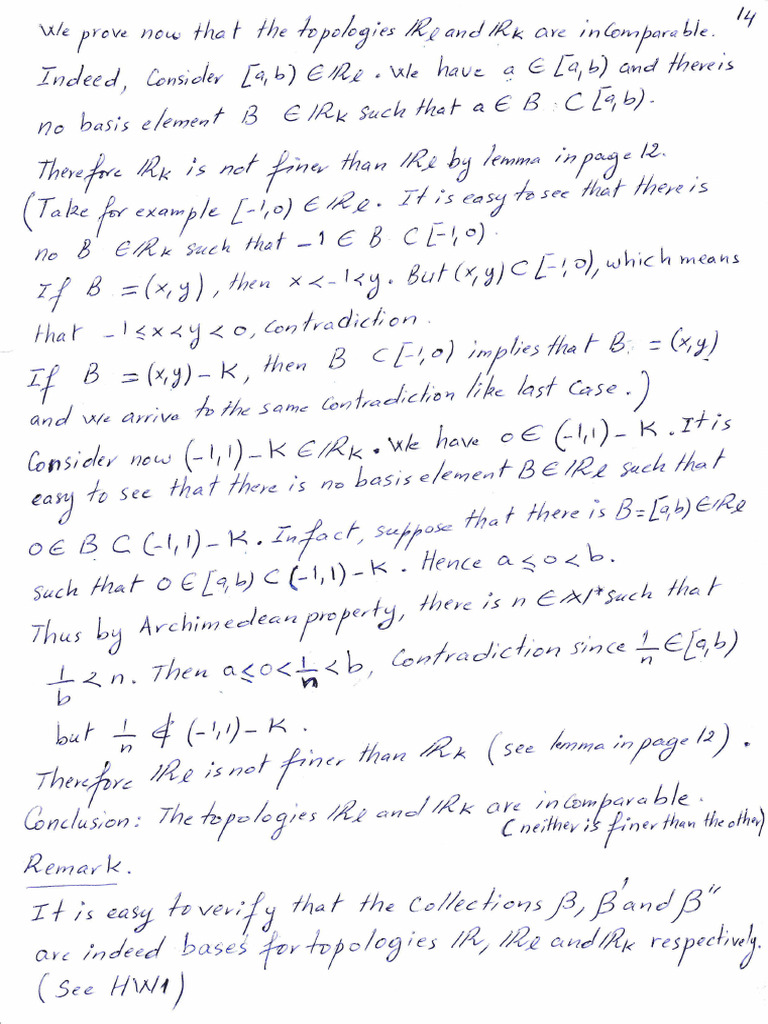 14
We prove now that the topologies ℝℓ and ℝK are incomparable.
Indeed, Consider [a,b) ∈ ℝℓ. We have a ∈ [a,b) and there is
no basis element B ∈ ℝK such that a ∈ B ⊂ [a,b).
Therefore ℝK is not finer than ℝℓ by lemma in page 12.
(Take for example [-1,0) ∈ ℝℓ. It is easy to see that there is
no B ∈ ℝK such that -1 ∈ B ⊂ [-1,0).
If B = (x,y), then x<-1<y. But (x,y) ⊂ [-1,0), which means
that -1≤x<y<0, contradiction.
If B = (x,y) - K, then B ⊂ [-1,0) implies that B = (x,y)
and we arrive to the same contradiction like last case.)
Consider now (-1,1) - K ∈ ℝK. We have 0 ∈ (-1,1) - K. It is
easy to see that there is no basis element B ∈ ℝℓ such that
0 ∈ B ⊂ (-1,1) - K. In fact, suppose that there is B = [a,b) ∈ ℝℓ
such that 0 ∈ [a,b) ⊂ (-1,1) - K. Hence a ≤ 0 < b.
Thus by Archimedean property, there is n ∈ ℕ* such that
1/b < n. Then a ≤ 0 < 1/n < b, Contradiction since 1/n ∈ [a,b)
but 1/n ∉ (-1,1) - K.
Therefore ℝℓ is not finer than ℝK (see lemma in page 12).
Conclusion: The topologies ℝℓ and ℝK are incomparable.
(neither is finer than the other)
Remark.
It is easy to verify that the Collections β, β' and β''
are indeed bases for topologies ℝ, ℝℓ and ℝK respectively.
(See HW1)